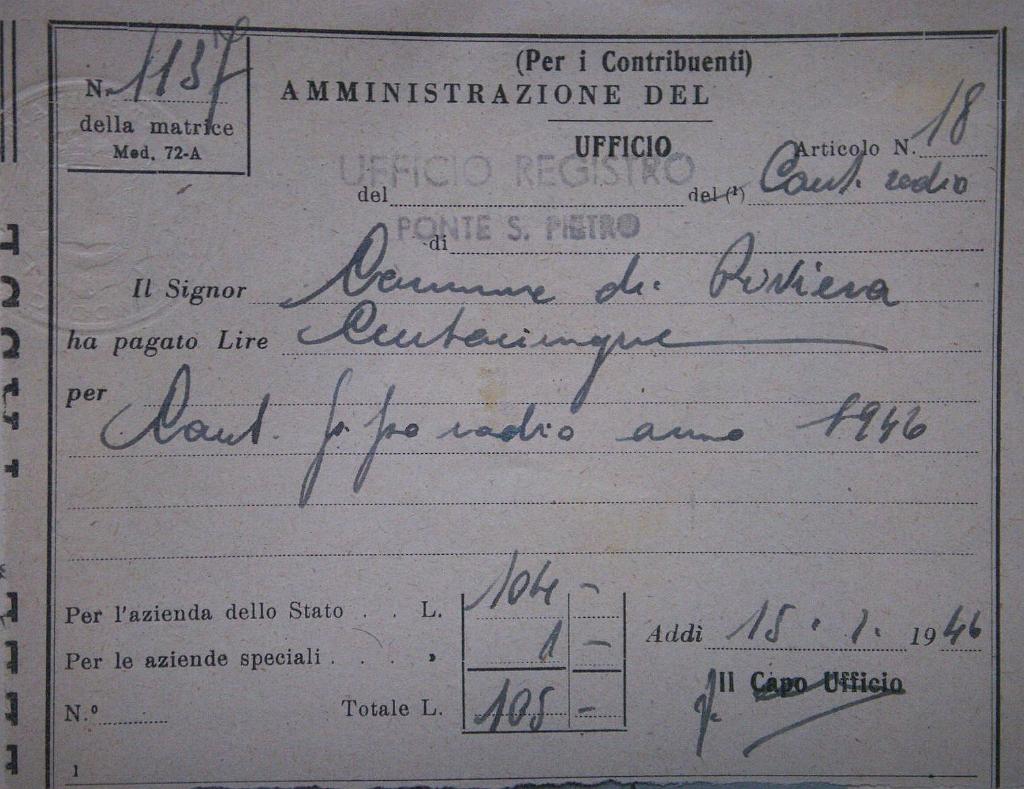 (Per i Contribuenti)
N. 1137
AMMINISTRAZIONE DEL
della matrice
Mod. 72-A
UFFICIO
Articolo N. 18
UFFICIO REGISTRO
del del (1) radio
PONTE S. PIETRO
di
Il Signor Comune di
ha pagato Lire Centocinque
per
radio anno 1946
Per l'azienda dello Stato . . L. 104 -
Addì 15 . 1. 1946
Per le aziende speciali . . . » 1 -
Il Capo Ufficio
N.° Totale L. 105 -
1